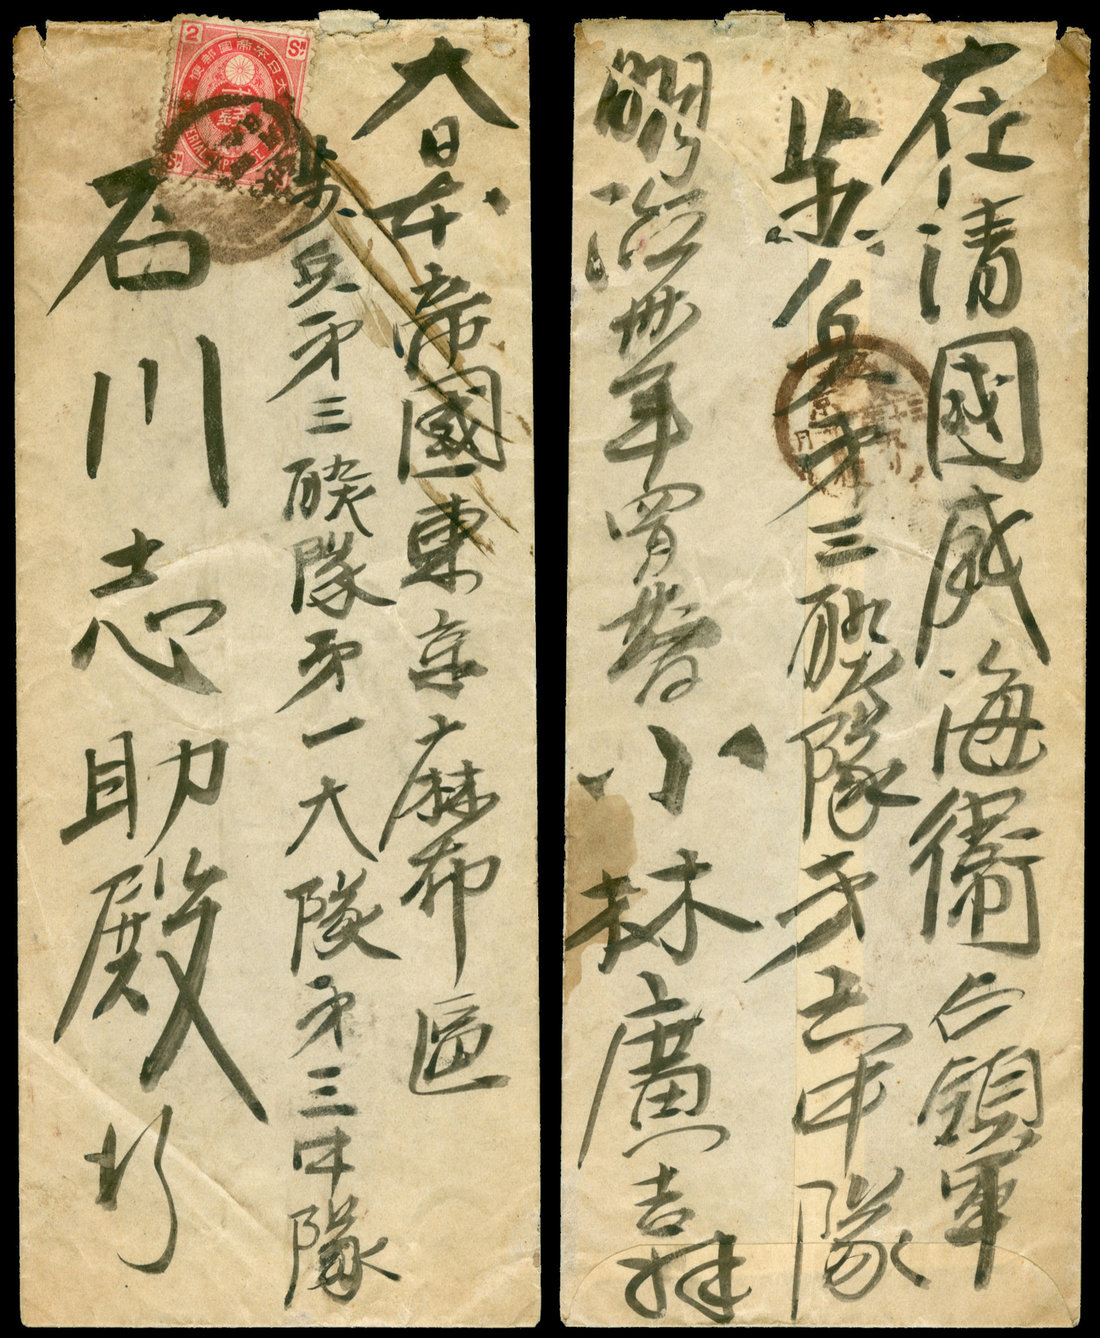 大日本帝國東京麻布區
歩兵第三聯隊第一大隊第三中隊
石川志助殿行
2
SN
大日本帝國郵便
在清國威海衛占領軍
歩兵第三聯隊第六中隊
明治卅年四月廿
小林廣吉拝